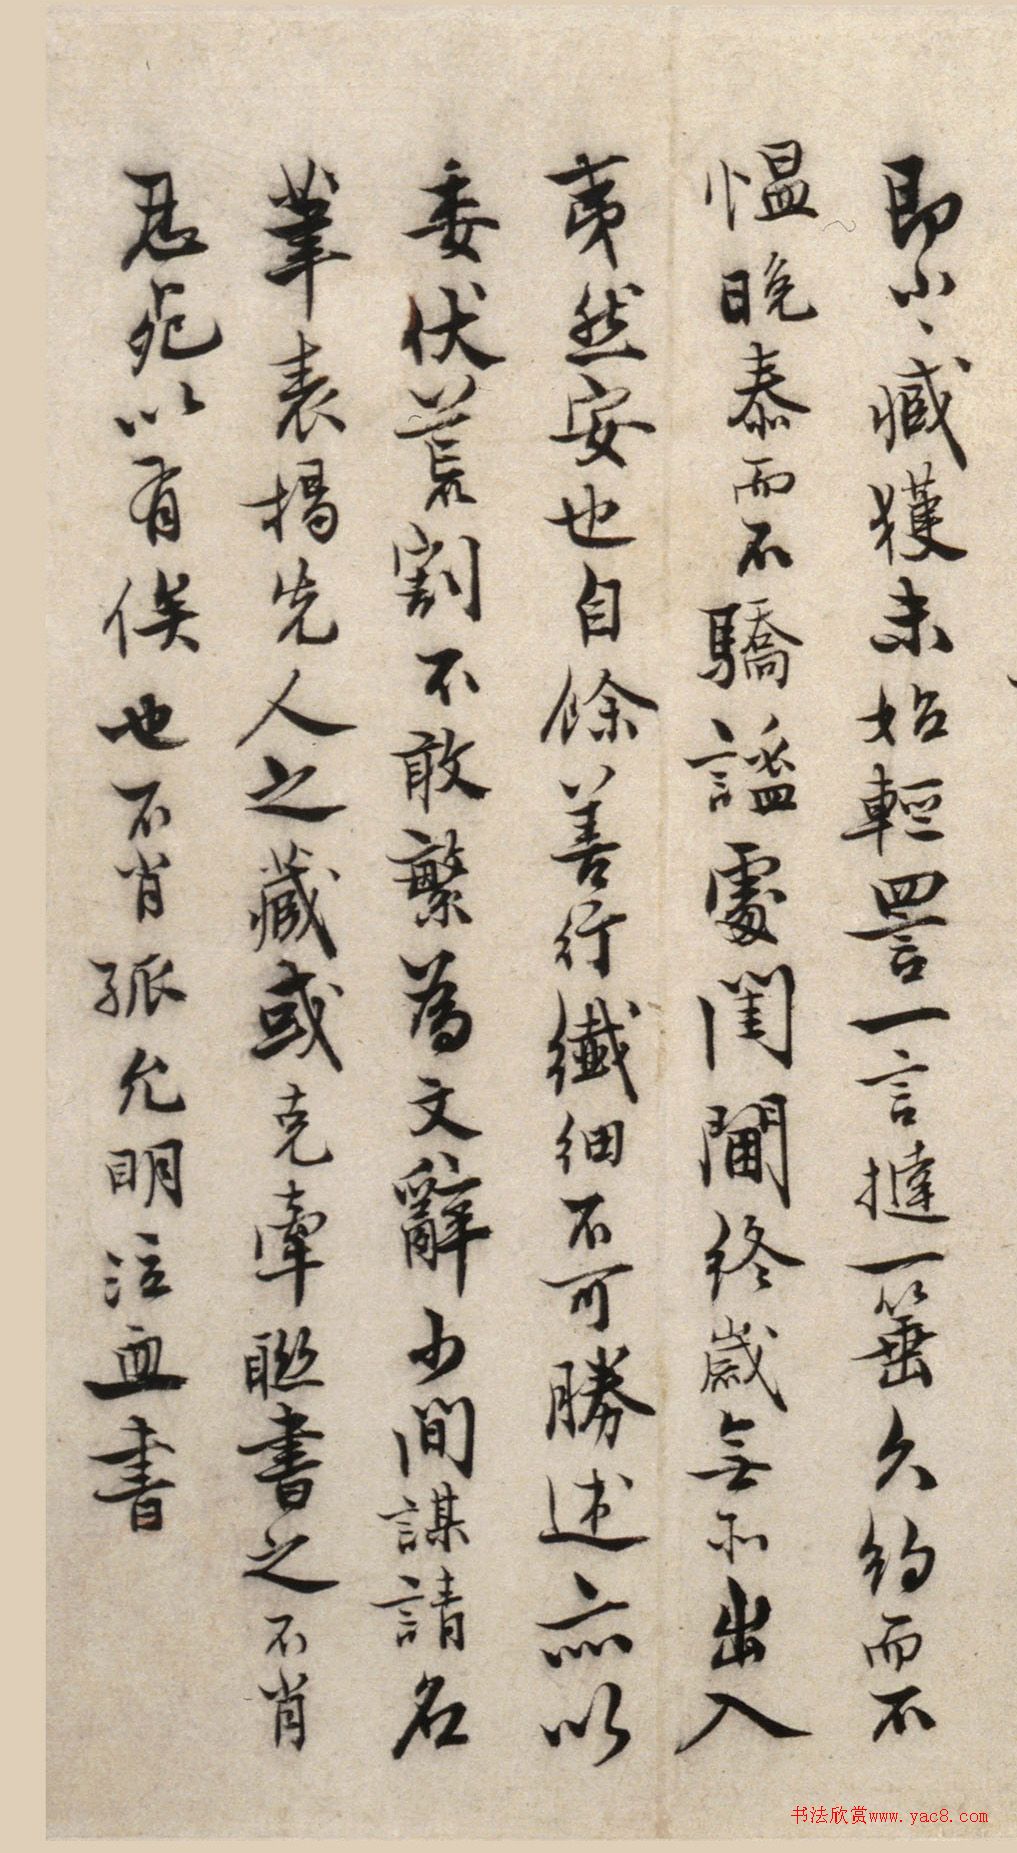 即小小臧獲未始輕詈一言撻一箠久約而不
愠晚泰而不驕謐處閨閫終歲無所出入
夷然安也自餘善行纖細不可勝述亦以
委伏荒割不敢繁為文辭少間謀請名
筆表揭先人之藏或克牽聯書之不肖
忍死以有俟也不肖孤允明泣血書
书法欣赏www.yac8.com